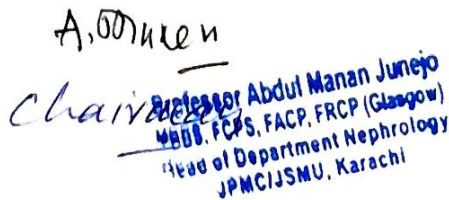 Chairman
Professor Abdul Manan Junejo
MBBS, FCPS, FACP, FRCP (Glasgow)
Head of Department Nephrology
JPMC/JSMU, Karachi